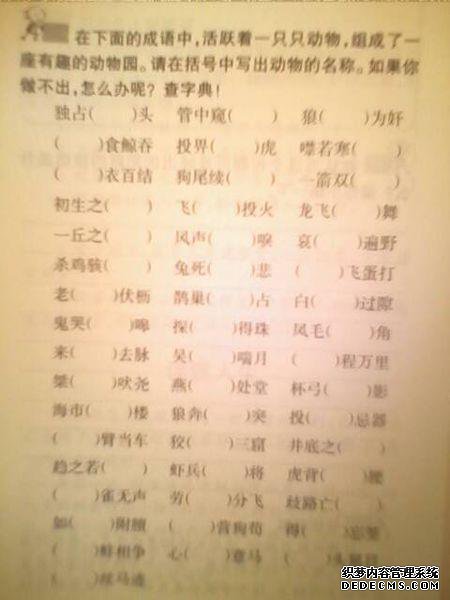 在下面的成语中，活跃着一只只动物，组成了一
座有趣的动物园。请在括号中写出动物的名称。如果你
做不出，怎么办呢？查字典！
独占(　)头　管中窥(　)　狼(　)为奸
(　)食鲸吞　投界(　)虎　噤若寒(　)
(　)衣百结　狗尾续(　)　一箭双(　)
初生之(　)　飞(　)投火　龙飞(　)舞
一丘之(　)　风声(　)唳　哀(　)遍野
杀鸡骇(　)　兔死(　)悲　(　)飞蛋打
老(　)伏枥　鹊巢(　)占　白(　)过隙
鬼哭(　)嗥　探(　)得珠　凤毛(　)角
来(　)去脉　吴(　)喘月　(　)程万里
桀(　)吠尧　燕(　)处堂　杯弓(　)影
海市(　)楼　狼奔(　)突　投(　)忌器
(　)臂当车　狡(　)三窟　井底之(　)
趋之若(　)　虾兵(　)将　虎背(　)腰
(　)雀无声　劳(　)分飞　歧路亡(　)
如(　)附膻　(　)营狗苟　得(　)忘筌
(　)蚌相争　心(　)意马　(　)头
(　)丝马迹
织梦内容管理系统
DEDECMS.COM